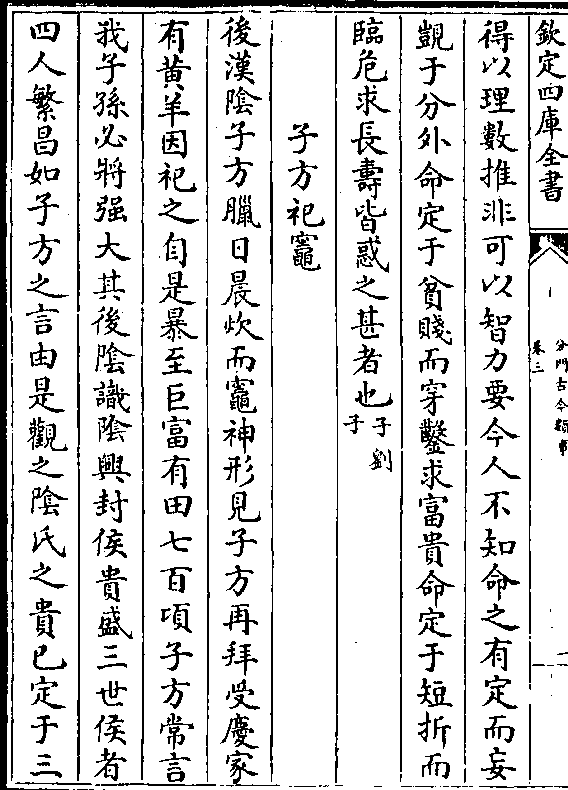 欽定四庫全書
分門古今類事
卷三
得以理數推非可以智力要今人不知命之有定而妄
覬于分外命定于貧賤而穿鑿求富貴命定于短折而
臨危求長壽皆惑之甚者也劉子子
子方祀竈
後漢陰子方臘日晨炊而竈神形見子方再拜受慶家
有黃羊因祀之自是暴至巨富有田七百頃子方常言
我子孫必將强大其後陰識陰興封侯貴盛三世侯者
四人繁昌如子方之言由是觀之陰氏之貴已定于三